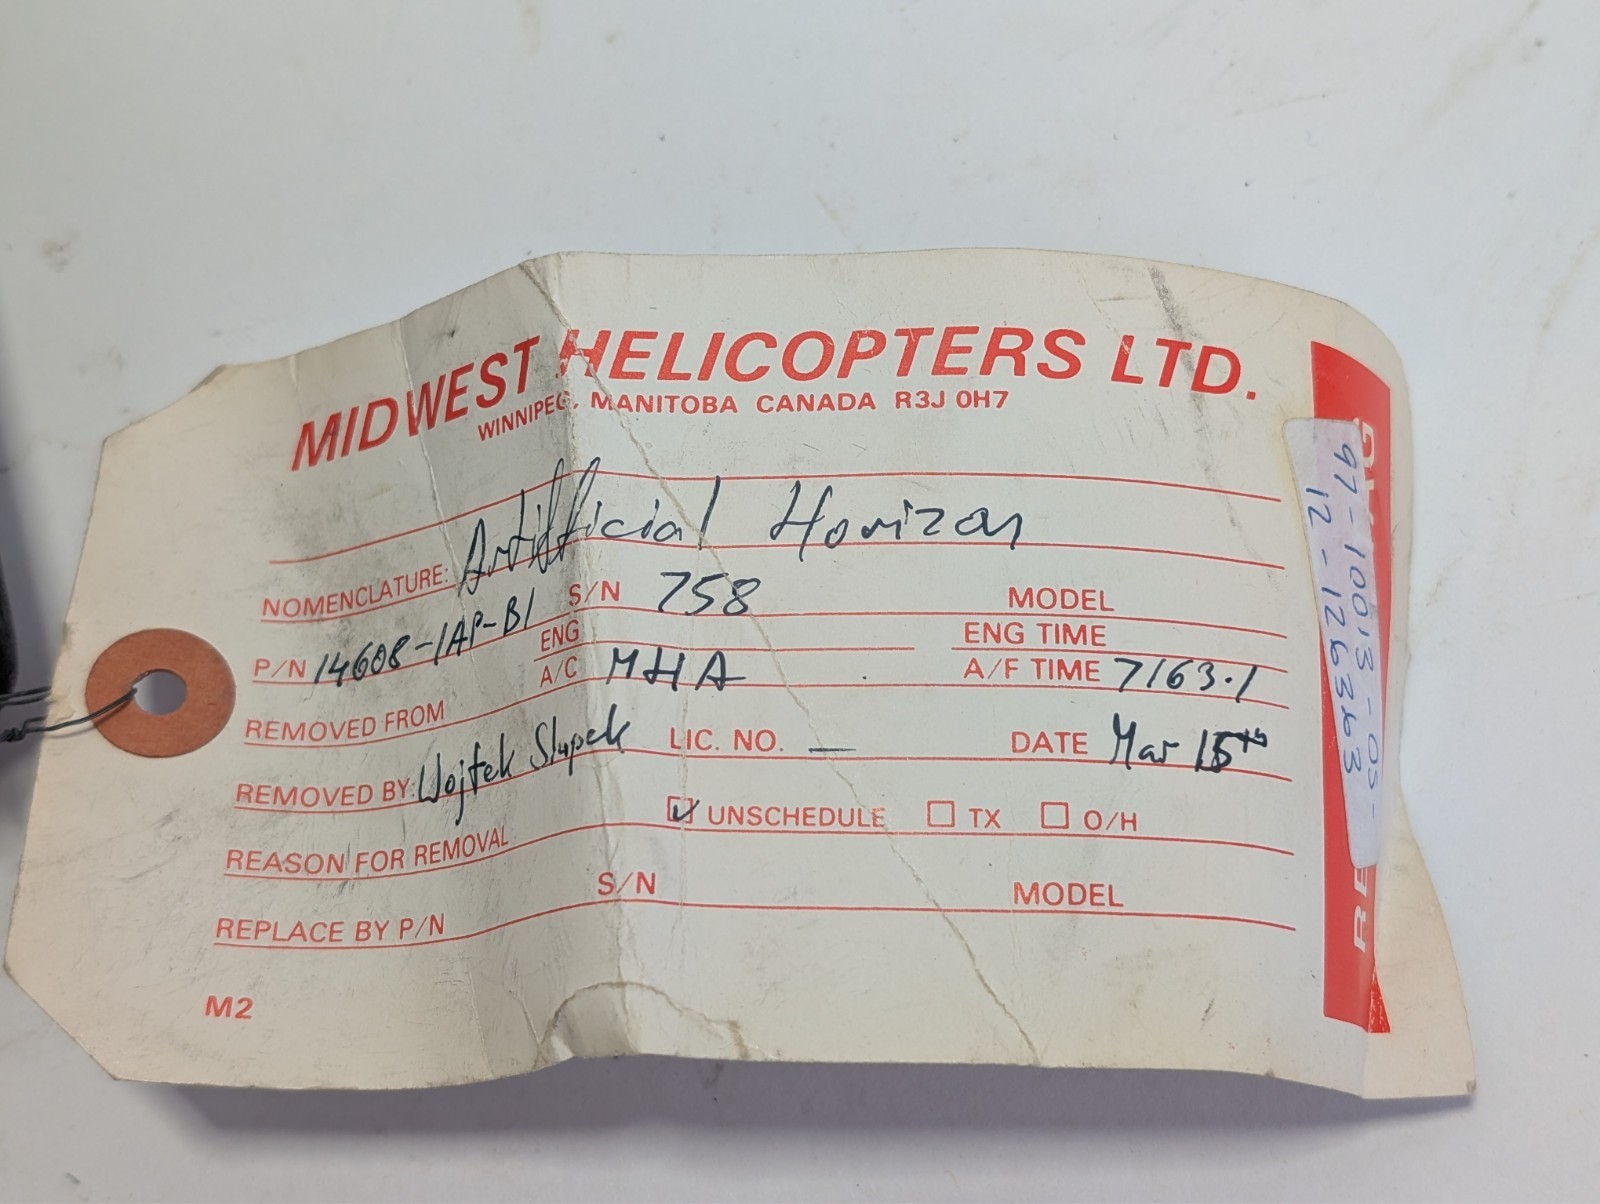 MIDWEST HELICOPTERS LTD.
WINNIPEG, MANITOBA CANADA R3J 0H7
NOMENCLATURE: Artifficial Horizon
P/N 14608-1AP-B1 S/N 758 MODEL
REMOVED FROM ENG ENG TIME
A/C MHA A/F TIME 7163.1
REMOVED BY: Wojtek Slupek LIC. NO. — DATE Mar 15th
REASON FOR REMOVAL ☑ UNSCHEDULE ☐ TX ☐ O/H
REPLACE BY P/N S/N MODEL
M2
97-10013-05-
12-126363